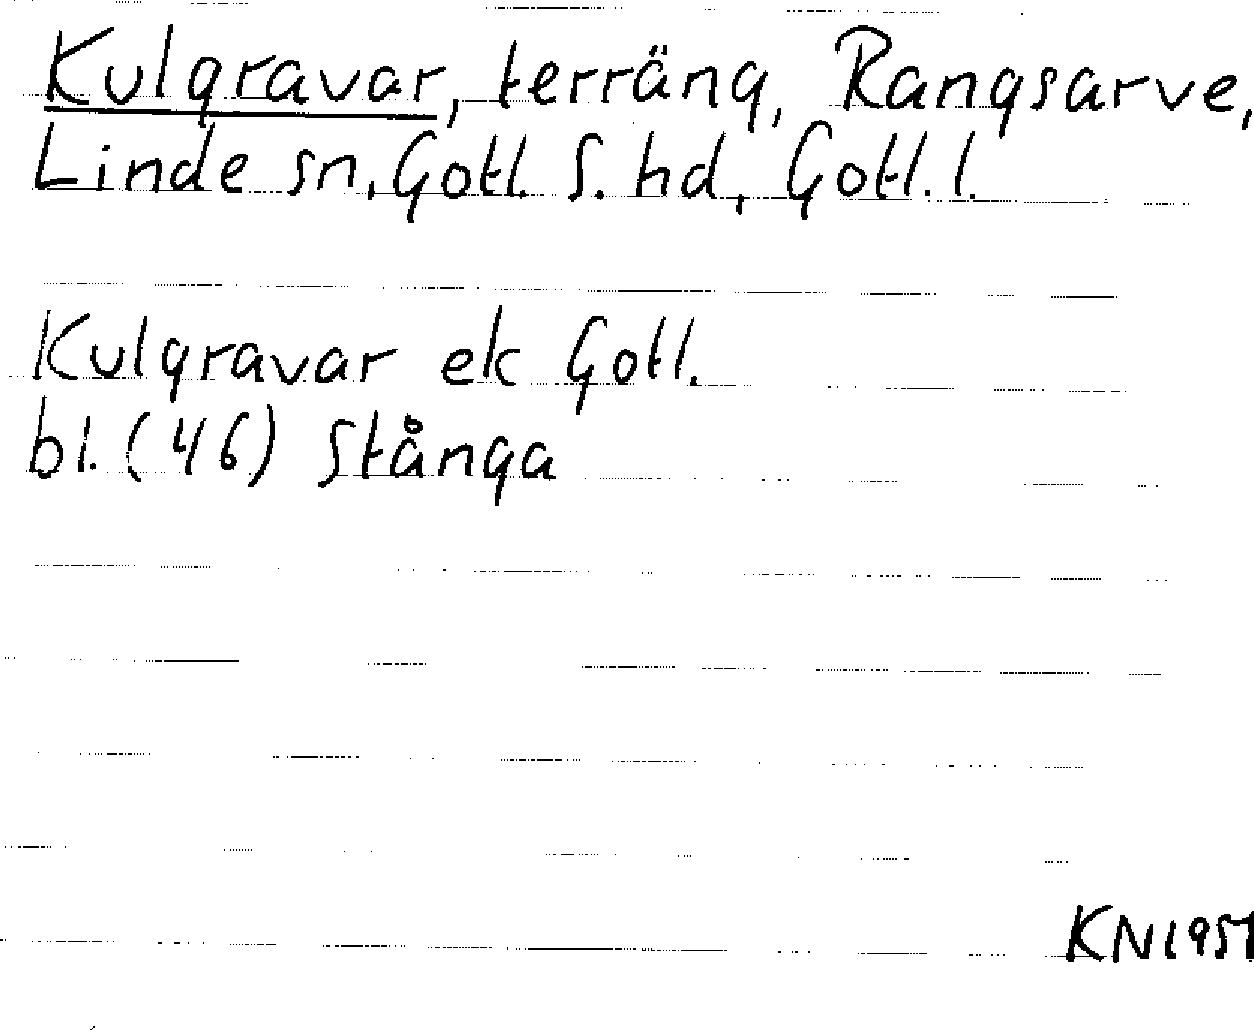 Kulgravar, terräng, Rangsarve,
Linde sn, Gotl. S. hd, Gotl. l.
Kulgravar ek Gotl.
bl. (46) Stånga
KN 1951